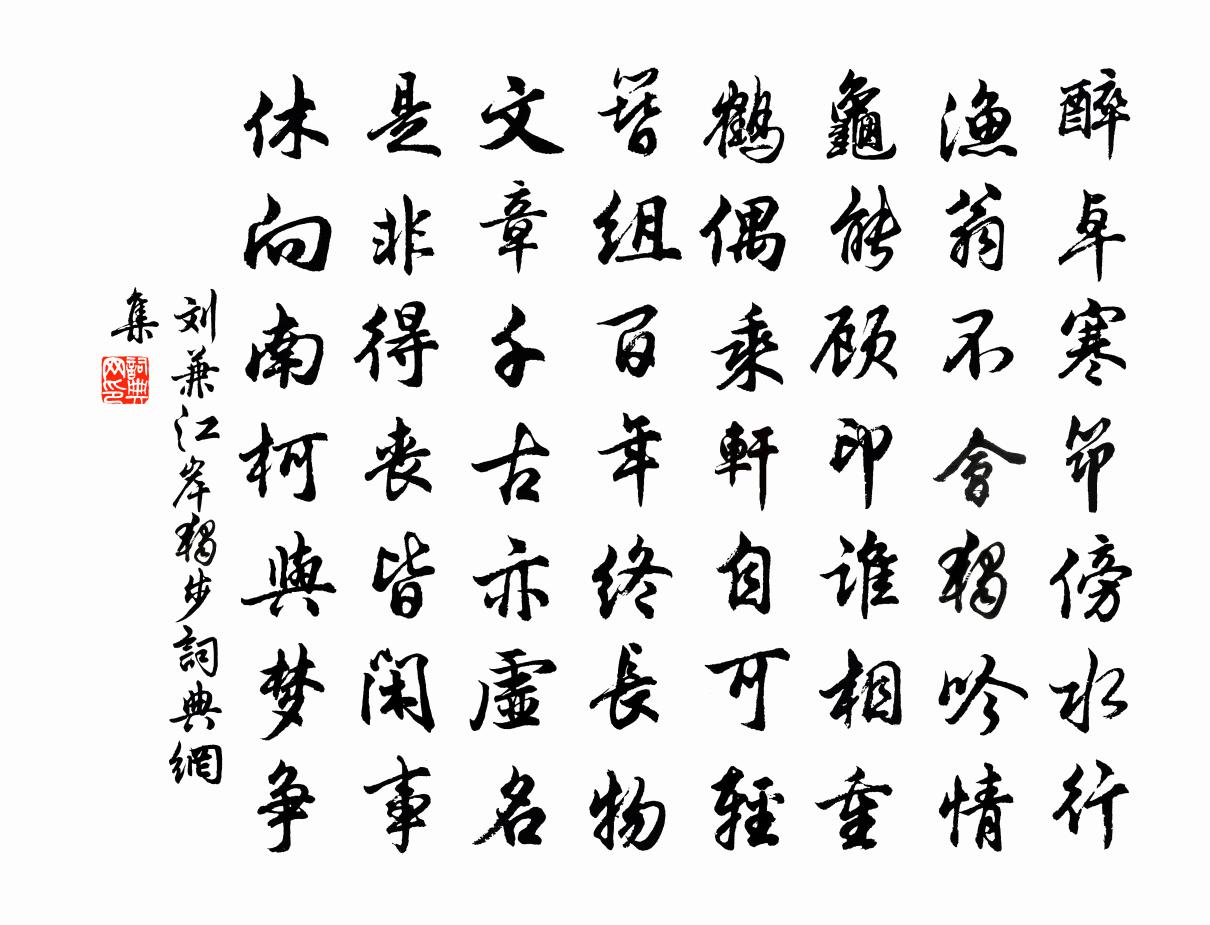 醉卓寒筇傍水行
漁翁不會獨吟情
龜能顾印谁相重
鶴偶乘軒自可輕
簪組百年终長物
文章千古亦虛名
是非得丧皆闲事
休向南柯與梦争
刘兼江岸獨步詞典網
集
詞典網印